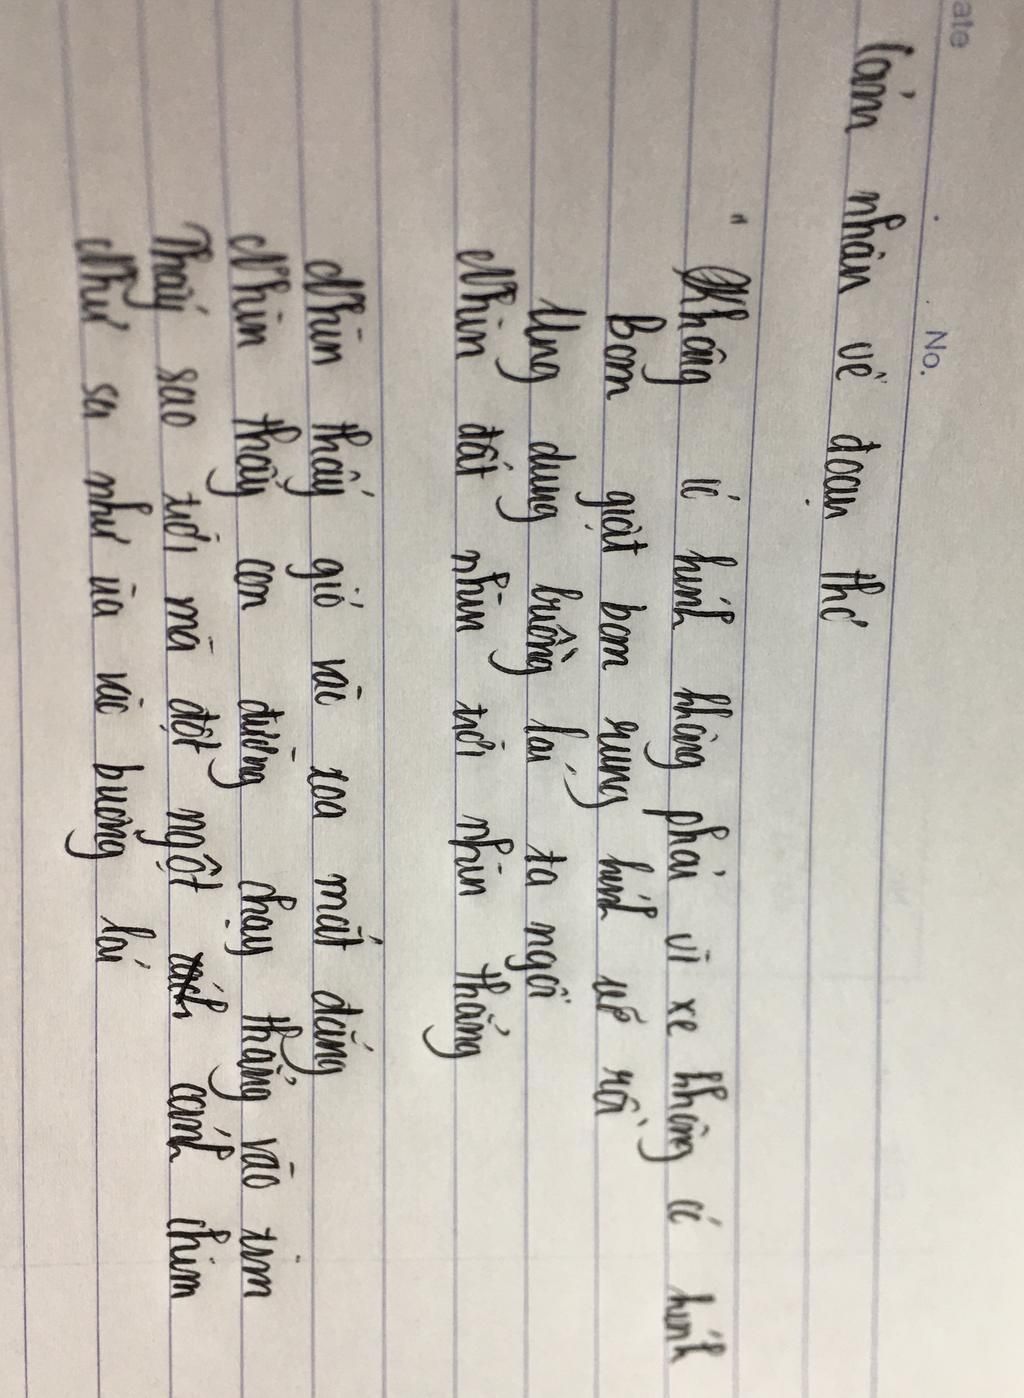 ate
No.
Cảm nhận về đoạn thơ
" Không có kính không phải vì xe không có kính
Bom giật bom rung kính vỡ rồi
Ung dung buồng lái ta ngồi
Nhìn đất nhìn trời nhìn thẳng
Nhìn thấy gió vào xoa mắt đắng
Nhìn thấy con đường chạy thẳng vào tim
Thấy sao trời mà đột ngột cánh chim
Như sa như ùa vào buồng lái